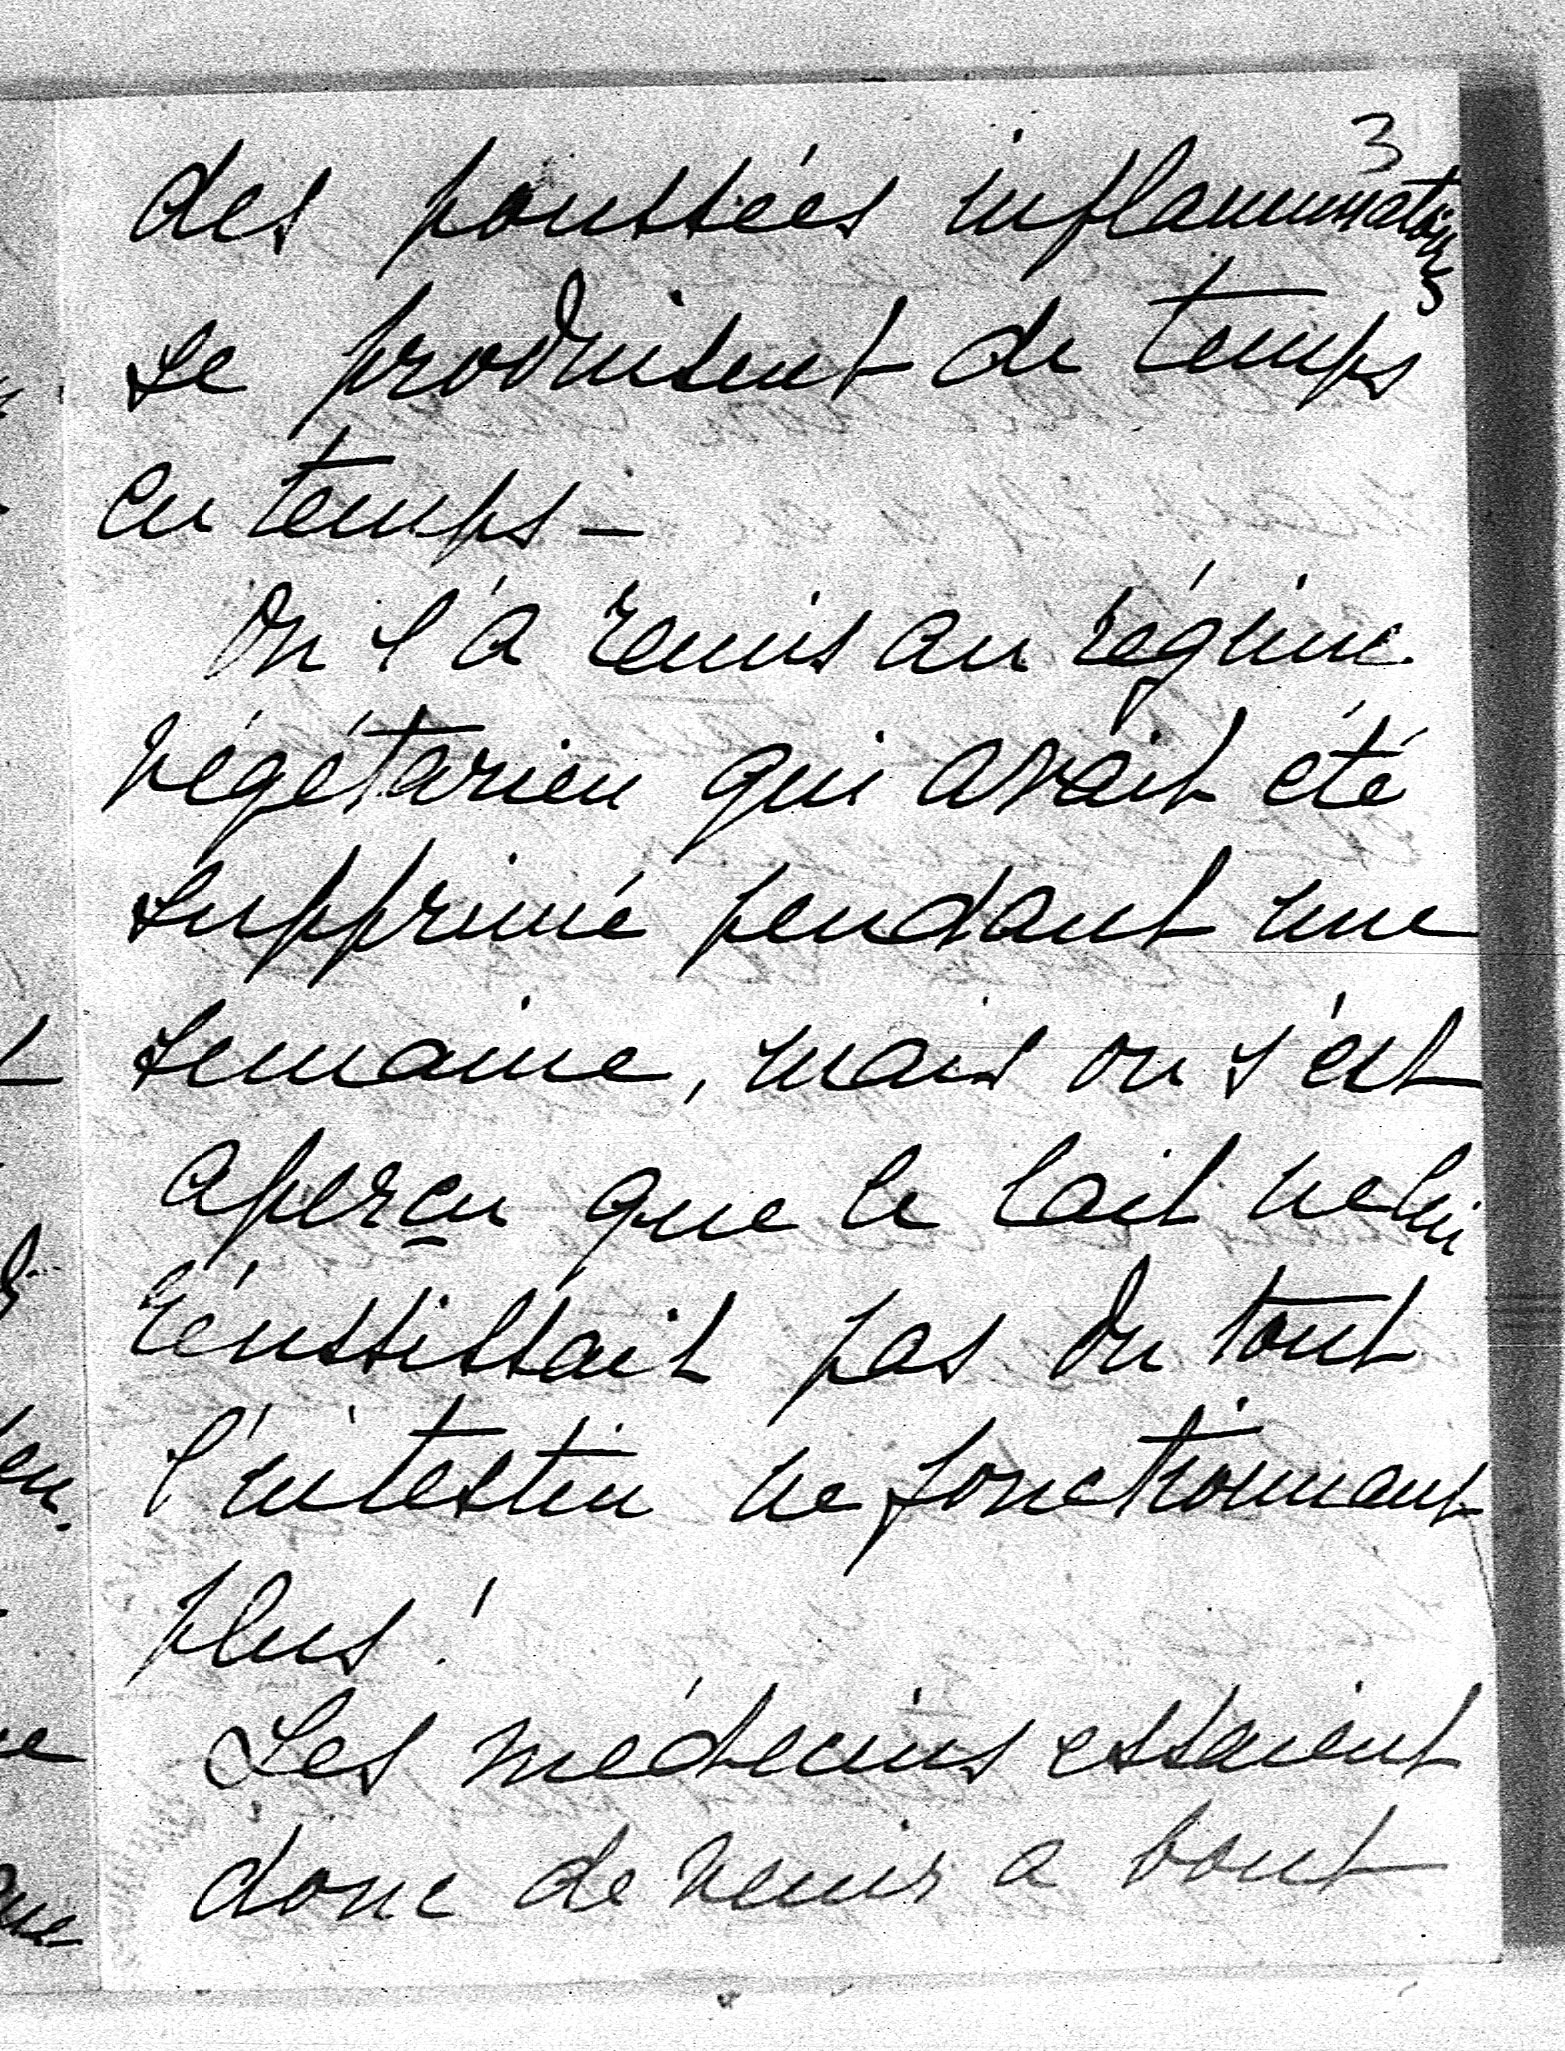 3
des poussées inflammatoires
se produisent de temps
en temps –
On l'a remis au régime
végétarien qui avait été
supprimé pendant une
semaine, mais on s'est
aperçu que le lait ne lui
réussissait pas du tout
l'intestin ne fonctionnant
plus !
Les médecins essaient
donc de venir a bout